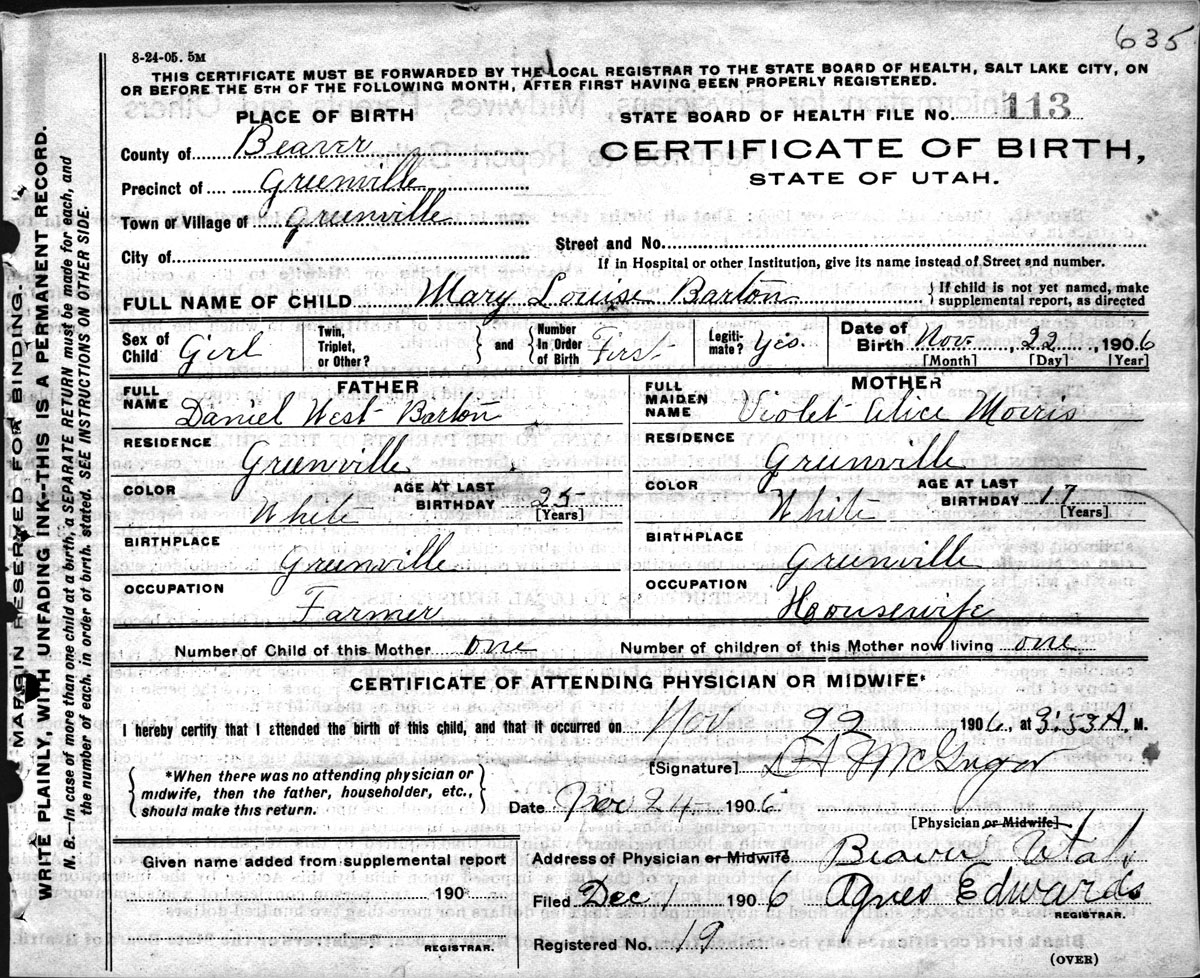 635
8-24-05. 5M
THIS CERTIFICATE MUST BE FORWARDED BY THE LOCAL REGISTRAR TO THE STATE BOARD OF HEALTH, SALT LAKE CITY, ON
OR BEFORE THE 5TH OF THE FOLLOWING MONTH, AFTER FIRST HAVING BEEN PROPERLY REGISTERED.
MARGIN RESERVED FOR BINDING.
WRITE PLAINLY, WITH UNFADING INK--THIS IS A PERMANENT RECORD.
N. B.—In case of more than one child at a birth, a SEPARATE RETURN must be made for each, and
the number of each, in order of birth, stated. SEE INSTRUCTIONS ON OTHER SIDE.
PLACE OF BIRTH
STATE BOARD OF HEALTH FILE NO. 113
County of Beaver
CERTIFICATE OF BIRTH,
STATE OF UTAH.
Precinct of Greenville
Town of Village of Greenville
Street and No.
City of
If in Hospital or other Institution, give its name instead of Street and number.
FULL NAME OF CHILD Mary Louise Barton
If child is not yet named, make
supplemental report, as directed
Sex of Child Girl
Twin, Triplet, or Other?
and
Number In Order of Birth First
Legitimate? Yes.
Date of Birth Nov. 22, 1906
[Month] [Day] [Year]
FATHER
MOTHER
FULL NAME Daniel West Barton
FULL MAIDEN NAME Violet Alice Morris
RESIDENCE Greenville
RESIDENCE Greenville
COLOR White
AGE AT LAST BIRTHDAY 25
[Years]
COLOR White
AGE AT LAST BIRTHDAY 17
[Years]
BIRTHPLACE Greenville
BIRTHPLACE Greenville
OCCUPATION Farmer
OCCUPATION Housewife
Number of Child of this Mother one
Number of children of this Mother now living one
CERTIFICATE OF ATTENDING PHYSICIAN OR MIDWIFE*
I hereby certify that I attended the birth of this child, and that it occurred on Nov 22 1906, at 3:53 A. M.
*When there was no attending physician or
midwife, then the father, householder, etc.,
should make this return.
[Signature] McGregor
Date Nov 24 1906
[Physician or Midwife]
Given name added from supplemental report
190
REGISTRAR.
Address of Physician or Midwife Beaver Utah
Filed Dec 1 1906 Agnes Edwards
REGISTRAR.
Registered No. 19
(OVER)